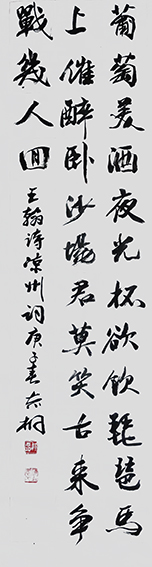 葡萄美酒夜光杯欲飲琵琶馬
上催醉卧沙場君莫笑古来争
戰幾人回 王翰诗凉州词庚子春